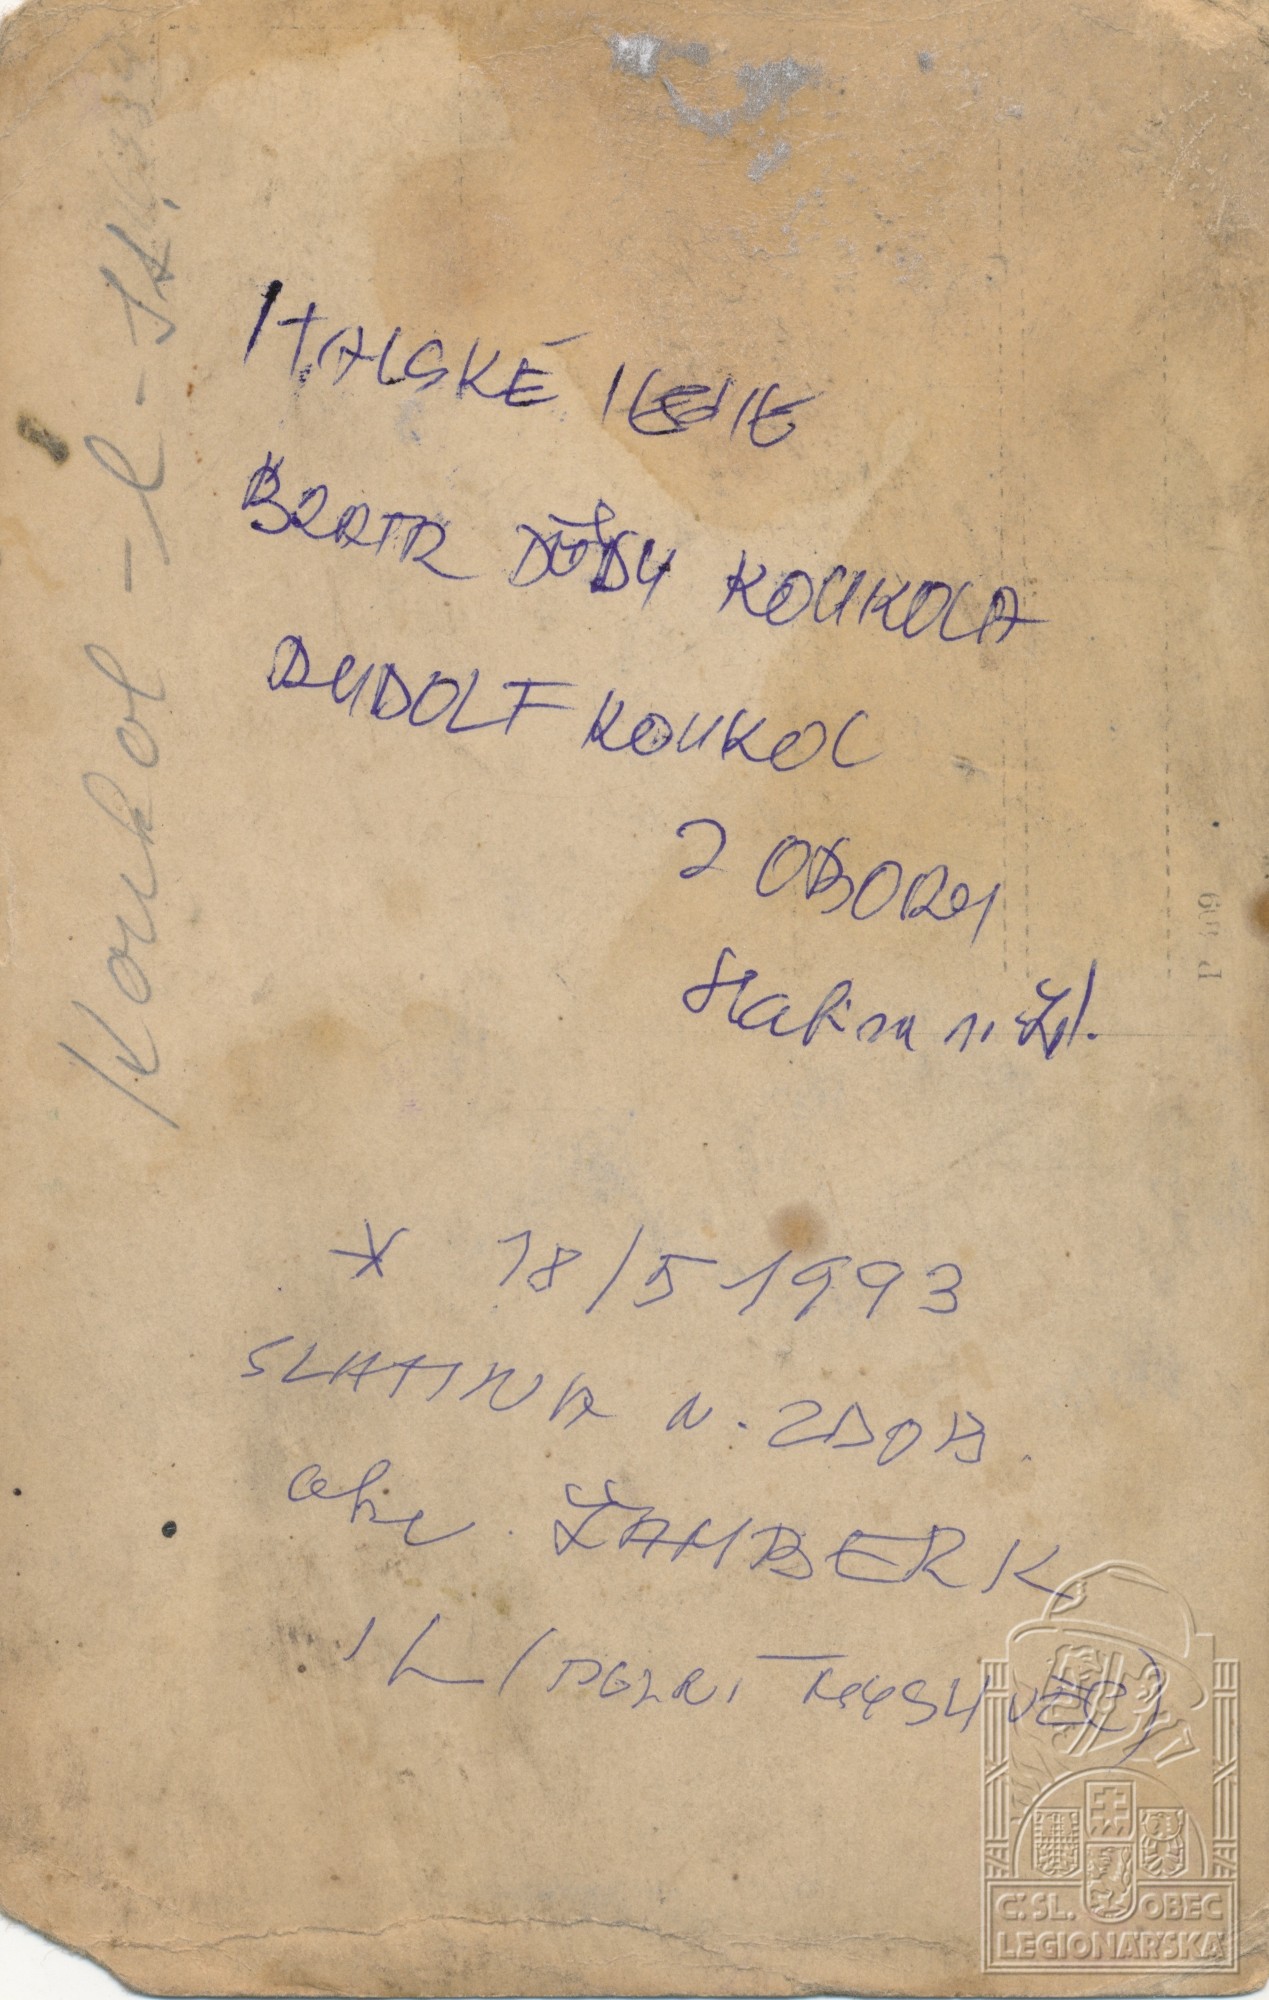 ITALSKÉ LEGIE
BRATR DĚDY KOUKOLA
RUDOLF KOUKOL
Z OBORY
Slatina n. Zd.
* 18/5 1993
SLATINA N. ZDOB.
okr. ŽAMBERK
Koukol
P 409
Č. SL. OBEC
LEGIONÁŘSKÁ